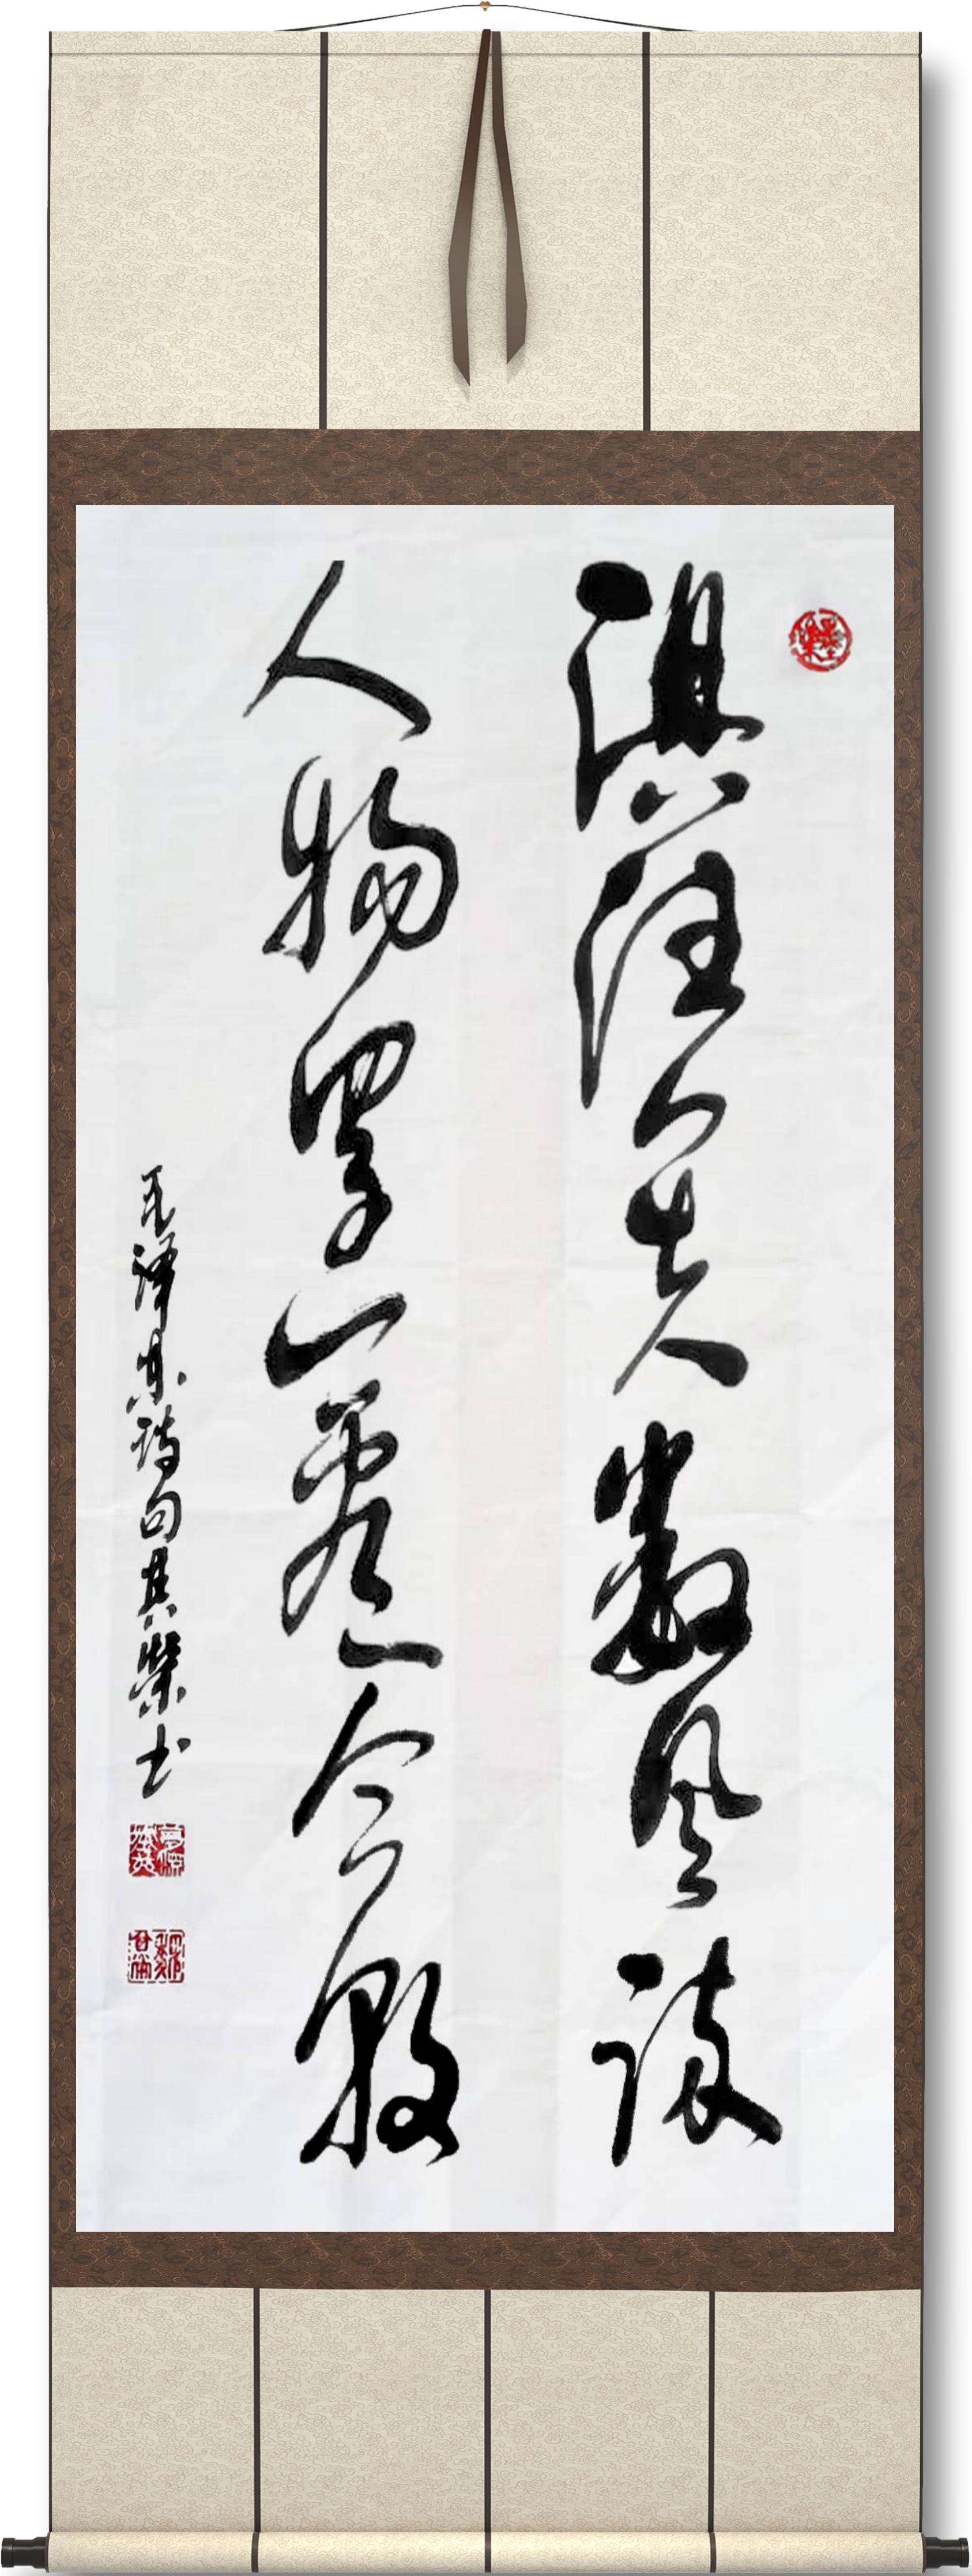 俱往矣數風流
人物還看今朝
毛澤東詩句其榮书